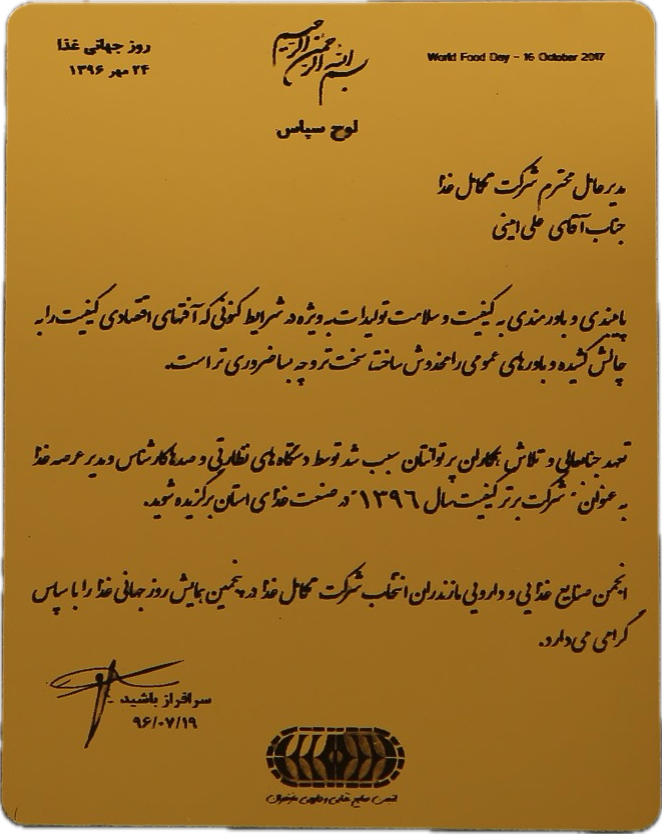 روز جهانی غذا
۲۴ مهر ۱۳۹۶
بسم الله الرحمن الرحیم
World Food Day - 16 October 2017
لوح سپاس
مدیرعامل محترم شرکت تکامل غذا
جناب آقای علی امینی
پایبندی و باورمندی به کیفیت و سلامت تولیدات به ویژه در شرایط کنونی که آفتهای اقتصادی کیفیت را به
چالش کشیده و باورهای عمومی را مخدوش ساخته سخت تر و چه بسا ضروری تر است.
تعهد جنابعالی و تلاش همکاران پرتوانتان سبب شد توسط دستگاه های نظارتی و صدها کارشناس و مدیر عرصه غذا
به عنوان "شرکت برتر کیفیت سال ۱۳۹٦" در صنعت غذای استان برگزیده شوید.
انجمن صنایع غذایی و دارویی مازندران انتخاب شرکت تکامل غذا در پنجمین همایش روز جهانی غذا را با سپاس
گرامی می دارد.
سرافراز باشید
۹۶/۰۷/۱۹
انجمن صنایع غذایی و دارویی مازندران